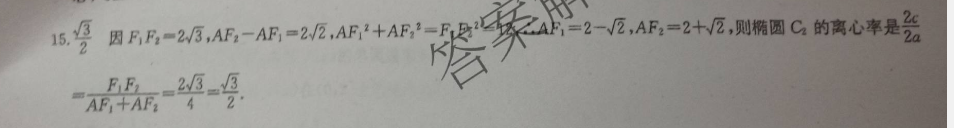 15. \frac{\sqrt{3}}{2} 因 F₁F₂=2√3,AF₂-AF₁=2√2,AF₁²+AF₂²=F₁F₂²=12,∴AF₁=2-√2,AF₂=2+√2,则椭圆 C₂ 的离心率是\frac{2c}{2a}
=\frac{F₁F₂}{AF₁+AF₂}=\frac{2√3}{4}=\frac{√3}{2}.
答案